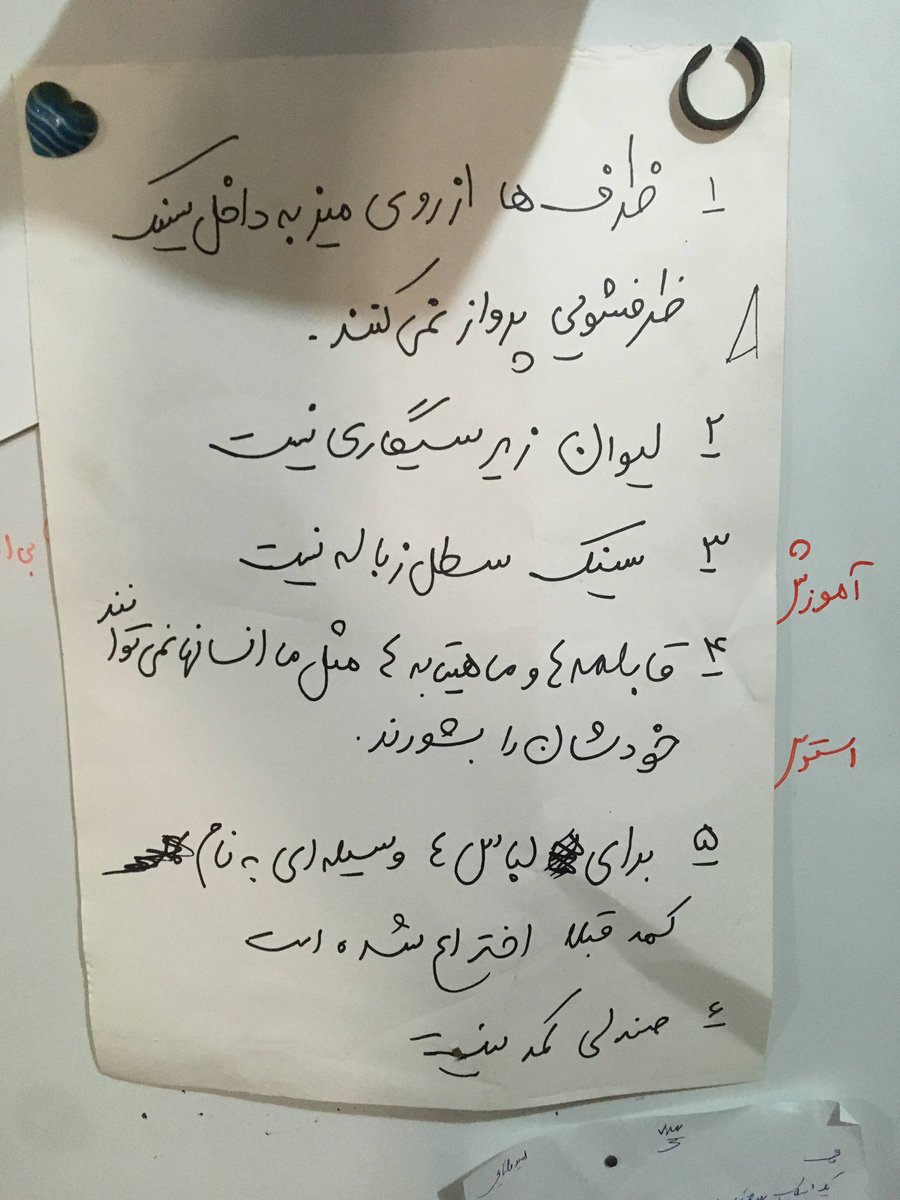 ۱ ظرف ها از روی میز به داخل سینک
ظرفشویی پرواز نمی کنند.
۲ لیوان زیر سیگاری نیست
۳ سینک سطل زباله نیست
۴ قابلمه ها و ماهیتابه ها مثل ما انسانها نمی توانند
خودشان را بشورند.
۵ برای لباس ها وسیله ای به نام
کمد قبلا اختراع شده است
۶ صندلی کمد نیست
آموزش